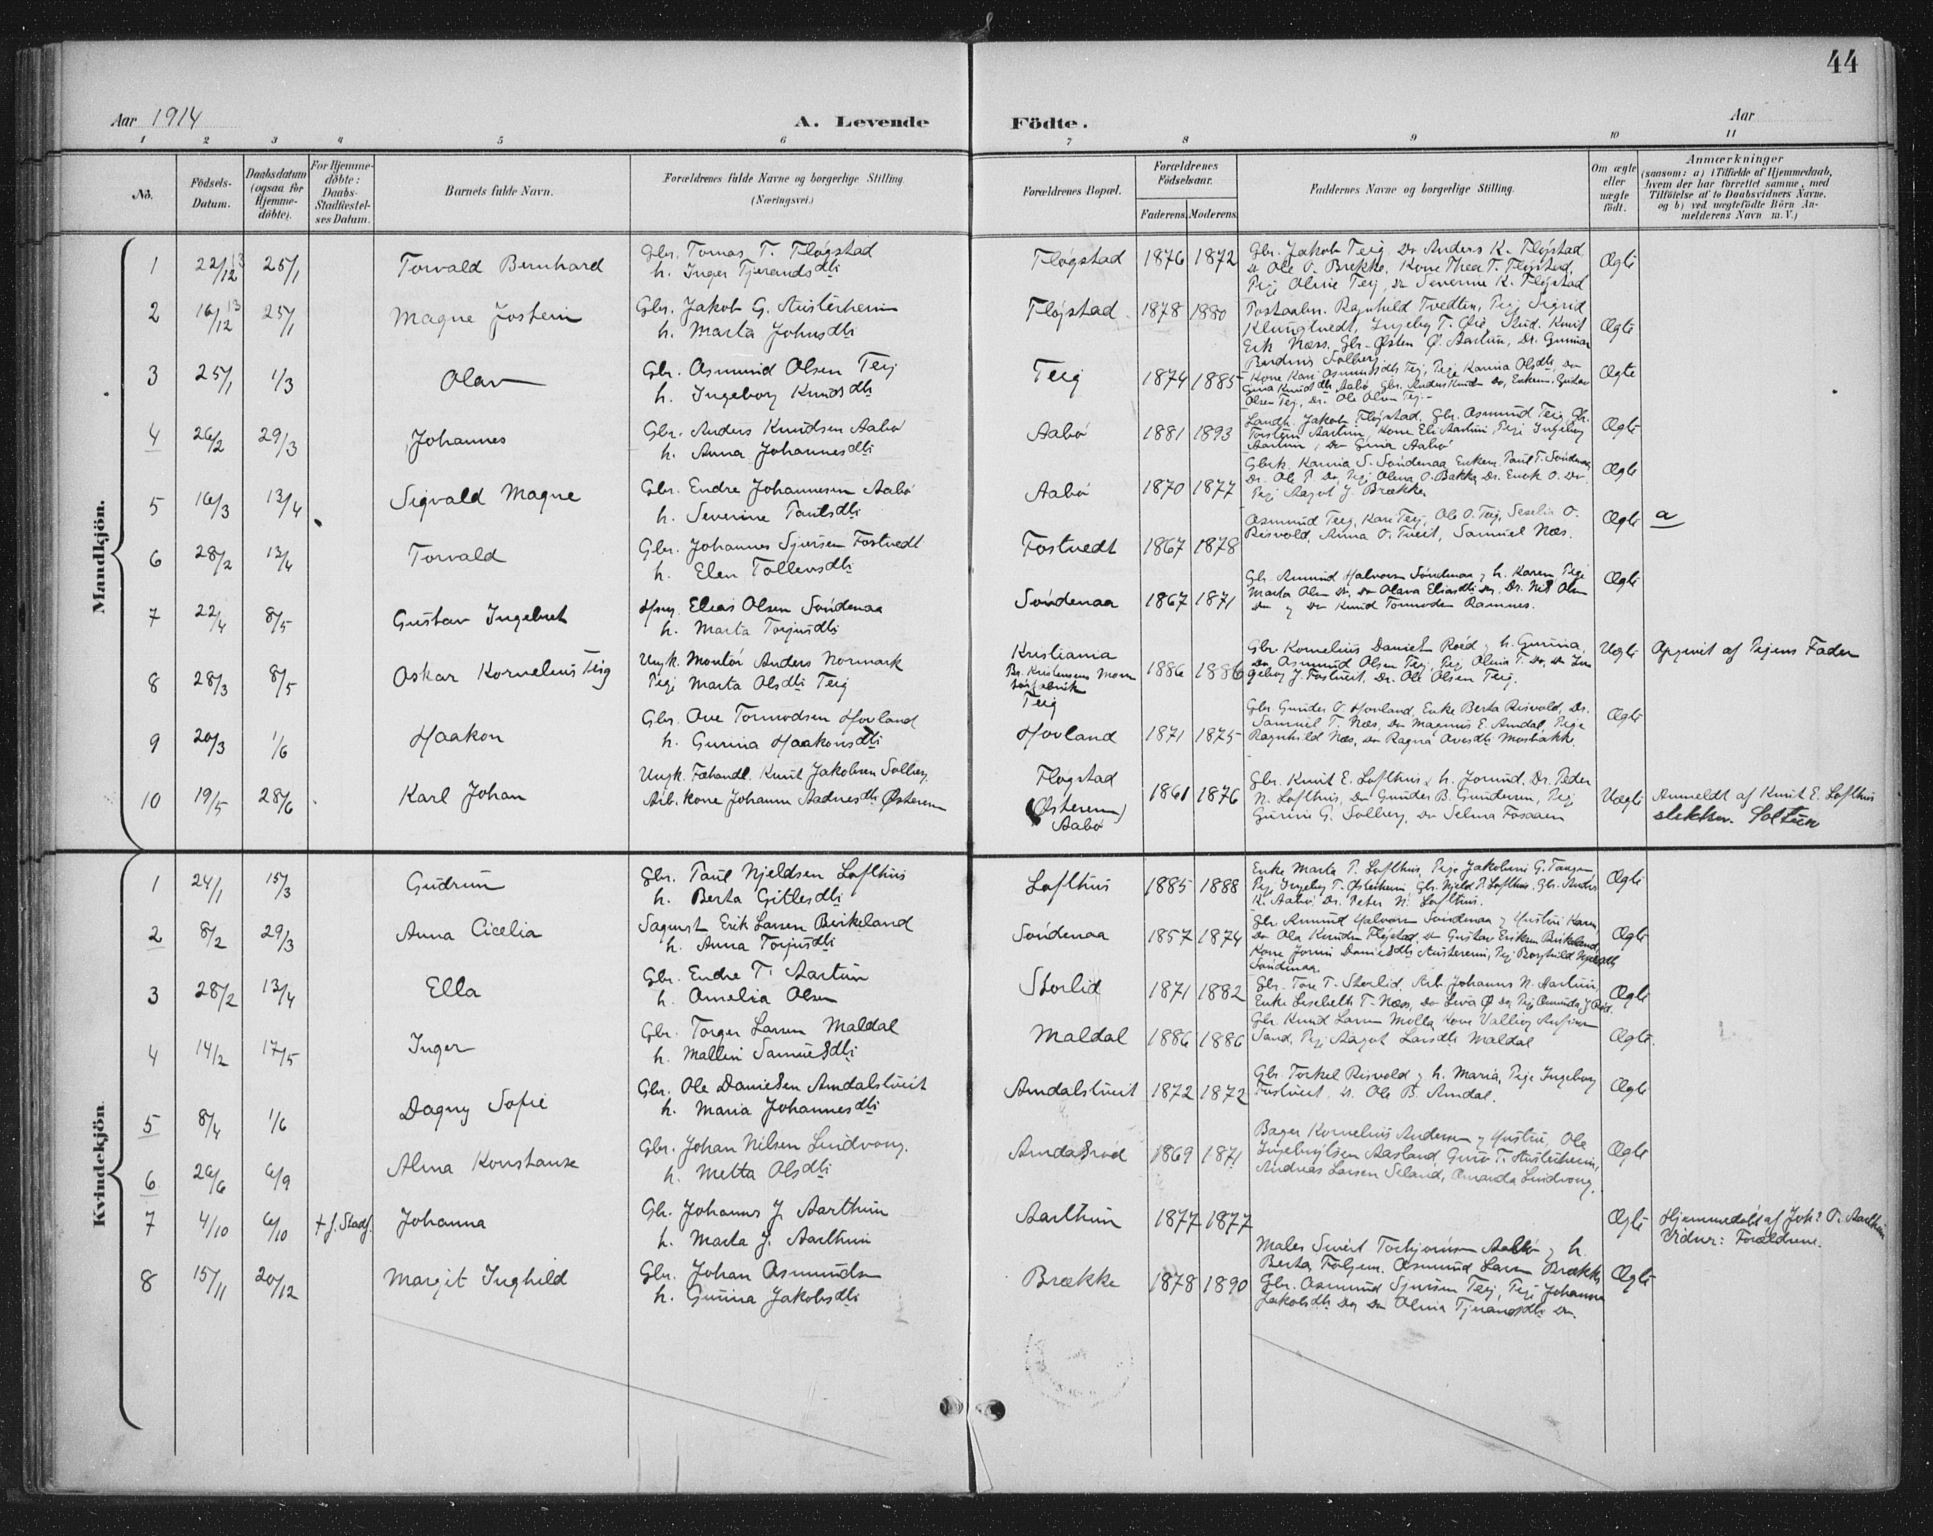 44
Aar 1914
A. Levende
Födte.
Aar
1 2 3 4 5 6 7 8 9 10 11
No.
Födsels-
Datum.
Daabsdatum
(ogsaa for
Hjemme-
döbte).
For Hjemme-
döbte:
Daabs-
Stadfæstel-
ses Datum.
Barnets fulde Navn.
Forældrenes fulde Navne og borgerlige Stilling.
(Næringsvei.)
Forældrenes Bopæl.
Forældrenes
Födselsaar.
Faderens. Moderens.
Faddernes Navne og borgerlige Stilling.
Om ægte
eller
uægte
født.
Anmærkninger
(saasom: a) i Tilfælde af Hjemmedaab,
hvem der har forrettet samme, med
Tilföielse af to Daabsvidners Navne.
og b) ved uægtefödte Börn An-
melderens Navn m. V.)
Mandkjön.
1 22/12 13 25/1 Torvald Bernhard
Gbr. Tomas T. Fløgstad
h. Inger Tjerandsdtr
Fløgstad 1876 1872
Gbr. Jakob Teig, Do Anders K. Fløgstad
Do Ole O. Brekke, Kone Thea T. Fløgstad,
Pige Oline Teig, Do Severine K. Fløgstad
Ægte
2 16/12 13 25/1 Magne Jostein
Gbr. Jakob G. Austerheim
h. Marta Johnsdtr
Fløgstad 1878 1880
Postaabn. Ragnhild Tvedten, Pige Sigrid
Klungtvedt, Ingeborg T. Øie, Stud. Knut
Erk Næss, Gbr. Østen Ø. Aartun, Dr. Gunnar
Ægte
3 25/1 1/3 Olav
Gbr. Osmund Olsen Teig
h. Ingeborg Knudsdtr
Teig 1874 1885
Kone Kari Osmundsdtr Teig, Pige Karina Olsdtr, Do
Gina Knudsdtr Aabø, Gbr. Anders Knuds Do, Enkem. Gustav
Olsen Teig, Dr. Ole Olsen Teig.
Ægte
4 26/2 29/3 Johannes
Gbr. Anders Knudsen Aabø
h. Anna Johannesdtr
Aabø 1881 1893
Landh. Jakob Fløgstad, Gbr. Osmund Teig, Gbr.
Torstein Aartun, Kone Eli Aartun, Pige Ingeborg
Aartun, Do Gina Aabø
Ægte
5 16/3 13/4 Sigvald Magne
Gbr. Endre Johannesen Aabø
h. Severine Paulsdtr
Aabø 1870 1877
Gbrk. Karina S. Søndenaa, Enkem. Paul T. Søndenaa,
Dr. Ole P. Do, Pige Olena O. Bakka, Dr. Enok O. Do
Pige Aagot J. Brække
Ægte
6 28/2 13/4 Torvald
Gbr. Johannes Sjursen Fostvedt
h. Elen Tollevsdtr
Fostvedt 1867 1878
Osmund Teig, Kari Teig, Ole O. Teig, Seselia O.
Risvold, Anna O. Tveit, Samuel Næs.
Ægte a
7 22/4 8/5 Gustav Ingebret
Hsm. Elias Olsen Søndenaa
h. Marta Torjusdtr
Søndenaa 1867 1871
Gbr. Amund Halvorsen Søndenaa og h. Karen, Pige
Marta Olsen Do, Do Olava Eliasdtr Do, Dr. Nils Olsen
Do og Do Knud Tormodsen Ramnes.
Ægte
8 28/3 8/5 Oskar Kornelius Teig
Ungk. Montør Anders Normark
Pige Marta Olsdtr Teig
Kristiania
Teig
1886 1886
Gbr Kornelius Danielsen Røed og h. Gurina,
Do Osmund Olsen Teig, Pige Olina T. Do, Do In-
geborg J. Fostveit, Dr. Ole Olsen Teig.
Uægte Opgivet af Pigens Fader
9 20/3 1/6 Haakon
Gbr. Ove Tormodsen Hovland
h. Gurina Haakonsdtr
Hovland 1871 1875
Gbr Gunder O. Hovland, Enke Berta Risvold, Dr.
Samuel T. Næs, Do Magnus E. Amdal, Pige
Ragnhild Næs, Do Ragna Ovesdtr Mosbakk.
Ægte
10 19/5 28/6 Karl Johan
Ungk. Fæhandl. Knut Jakobsen Solberg
Arb. kone Johanne Aadnesdtr Østerem
Fløgstad
(Østerem)
Aabø
1861 1876
Gbr. Knut E. Lofthus & h. Jorund, Dr. Peder
N. Lofthus, Do Gunder B. Gundersen, Pige
Gurine G. Solberg, Do Selma Fossaen
Uægte Anmeldt af Knut E. Lofthus
Kvindekjön.
1 24/1 15/3 Gudrun
Gbr. Paul Njeldsen Lofthus
h. Berta Gitlesdtr
Lofthus 1885 1888
Enke Marta P. Lofthus, Pige Jakobine G. Tangen
Pige Ingeborg T. Østerheim, Gbr. Njeld P. Lofthus, Gbr. Anders
K. Aabø, Dr. Peter N. Lofthus.
Ægte
2 8/2 29/3 Anna Cicelia
Sagmst. Erik Larsen Birkeland
h. Anna Torjusdtr
Søndenaa 1857 1874
Gbr Amund Halvorsen Søndenaa og Hustru Karen,
Do Ola Knudsen Fløgstad, Do Gustav Eriksen Birkeland,
Kone Jorun Danielsdtr Austerem, Pige Borghild Njeldsdtr
Søndenaa.
Ægte
3 28/2 13/4 Ella
Gbr. Endre T. Aartun
h. Amelia Olsen
Storlid 1871 1882
Gbr. Tore T. Storlid, Arb. Johannes N. Aartun,
Enke Lisebeth T. Næss, Do Liva Ø Do, Pige Osmunda J. Røed.
Ægte
4 14/2 17/5 Inger
Gbr. Torger Larsen Maldal
h. Mallin Samuelsdtr
Maldal 1886 1886
Gbr. Knud Larsen Molla, Kone Valborg
Sand, Pige Aagot Larsdtr Maldal
Ægte.
5 8/4 1/6 Dagny Sofie
Gbr. Ole Danielsen Amdalstveit
h. Maria Johannesdtr
Amdalstveit 1872 1872
Gbr. Torkel Risvold og h. Maria, Pige Ingeborg
Fostveit, Dr. Ole B. Amdal.
Ægte
6 26/6 6/9 Alma Konstanse
Gbr. Johan Nilsen Lindvong.
h. Metta Olsdtr
Amdalsrød 1869 1871
Bager Kornelius Andersen og Hustru, Ole
Ingebrigtsen Aasland, Guro T. Austerheim,
Andreas Larsen Seland, Amanda Lindvong.
Ægte
7 4/10 6/10 + f. Stadf. Johanna
Gbr. Johannes J. Aarthun
h. Marta J. Aarthun
Aarthun 1877 1877
Ægte Hjemmedøbt af Joh. O. Aarthun
Vidner: Forældrene.
8 15/11 20/12 Margit Inghild
Gbr. Johan Osmundsen
h. Gurina Jakobsdtr
Brække 1878 1890
Maler Sivert Torbjørnsen Aabø og h.
Berta, Osmund Larsen Brække,
Gbr. Osmund Sjursen Teig, Pige Johanna
Jakobsdtr Do, Do Olina Tjerandsdtr Do.
Ægte